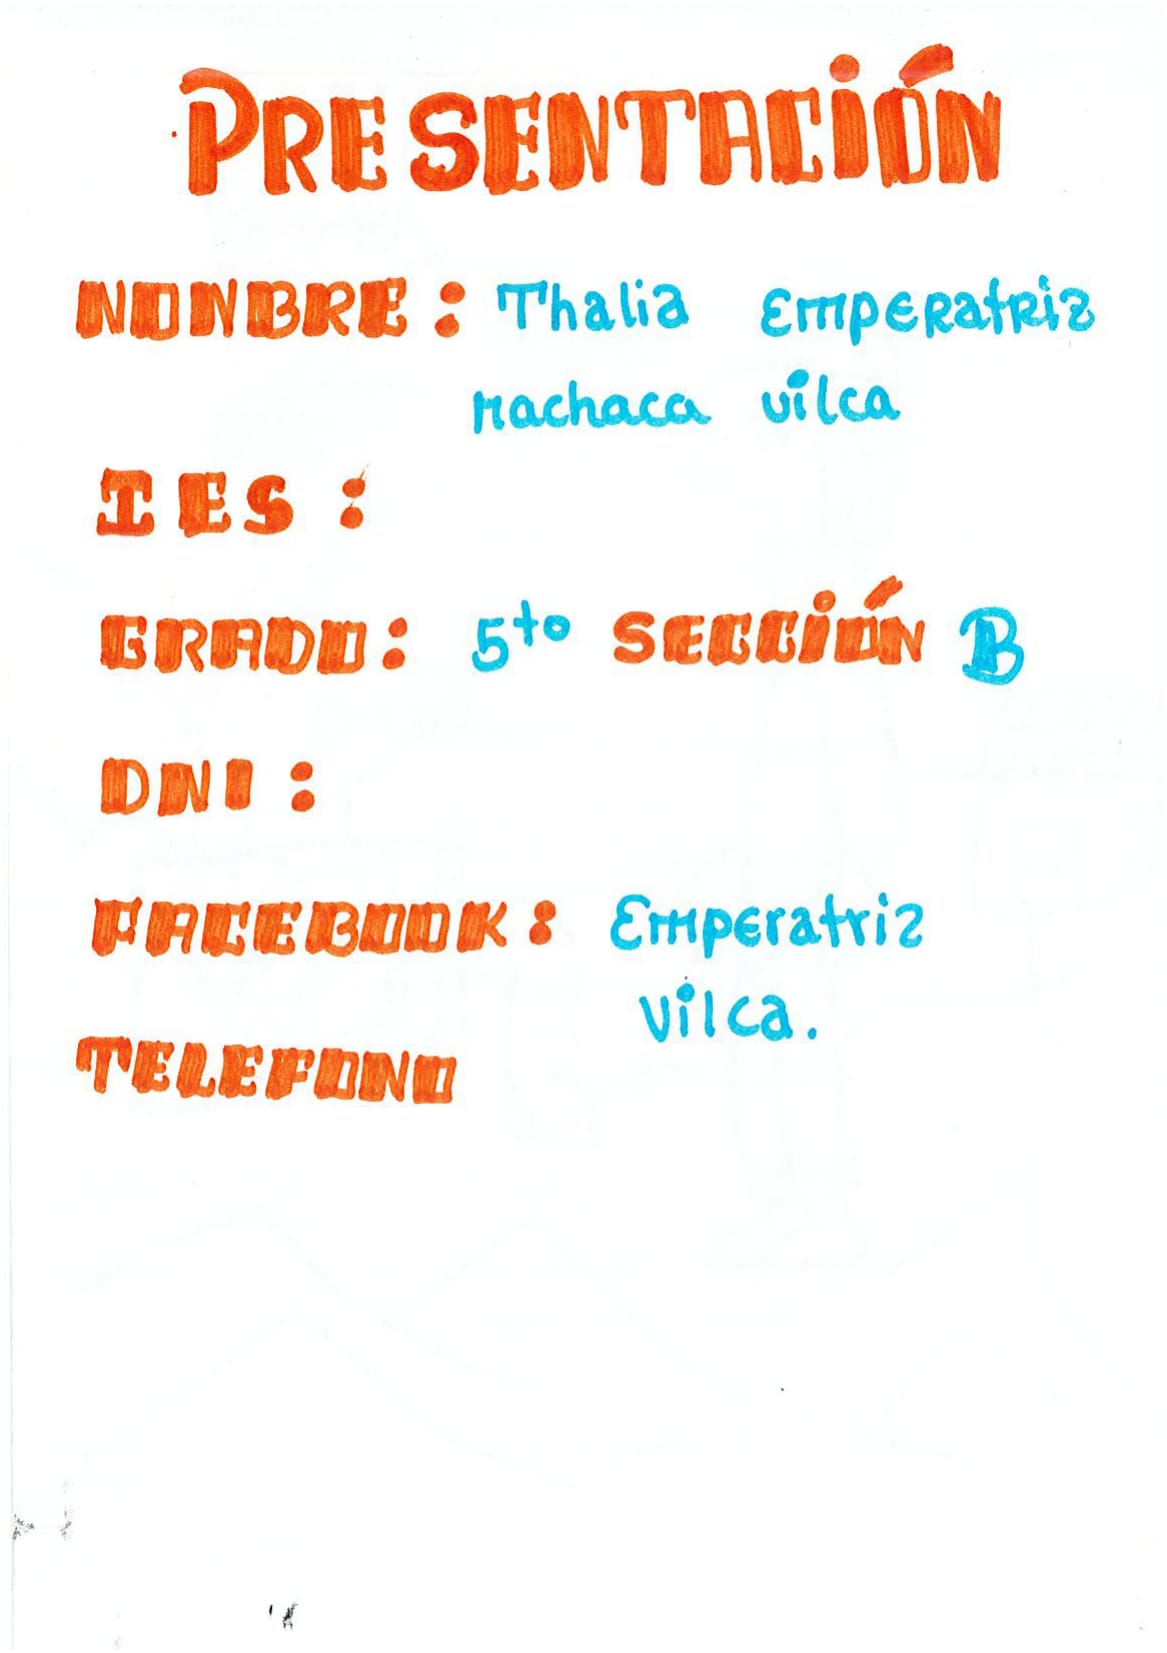 PRESENTACIÓN
NONBRE: Thalia EmpeRatRiz
machaca vilca
IES:
GRADO: 5to SECCIÓN B
DNI:
FACEBOOK: Emperatriz
vilca.
TELEFONO